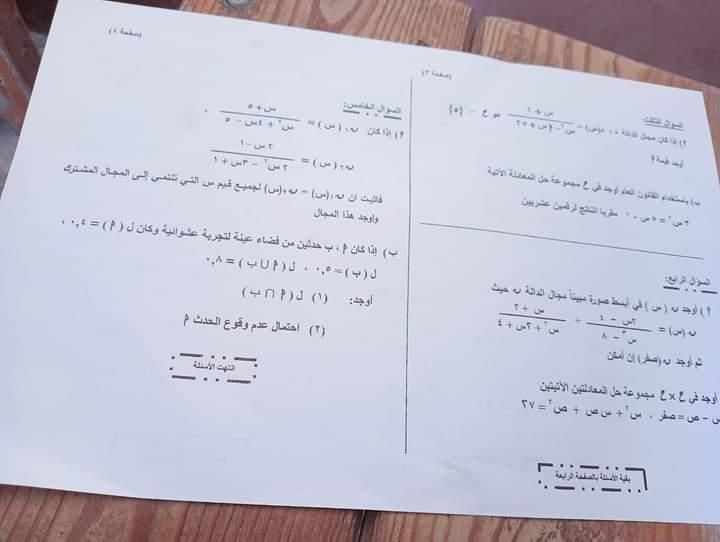 (صفحة ٣)
السؤال الثالث:
أ) إذا كان مجال الدالة ن : ن(س) = (س + ١) / (س٢ - أ س + ٢٥) هو ح - {٥}
أوجد قيمة أ
ب) باستخدام القانون العام أوجد في ح مجموعة حل المعادلة الآتية
٣ س٢ = ٥ س - ١ مقربا الناتج لرقمين عشريين
السؤال الرابع:
أ) أوجد ن (س) في أبسط صورة مبيناً مجال الدالة ن حيث
ن (س) = (٢س - ٤) / (س٣ - ٨) ÷ (س + ٢) / (س٢ + ٢س + ٤)
ثم أوجد ن (صفر) إن أمكن
أوجد في ح × ح مجموعة حل المعادلتين الآتيتين
س - ص = صفر ، س٢ + س ص + ص٢ = ٢٧
بقية الأسئلة بالصفحة الرابعة
(صفحة ٤)
السؤال الخامس:
أ) إذا كان ن١ (س) = (س + ٥) / (س٢ + ٤س - ٥) ،
ن٢ (س) = (٢ س - ١) / (٢ س٢ - ٣س + ١)
فاثبت ان ن١(س) = ن٢(س) لجميع قيم س التي تنتمي إلى المجال المشترك
واوجد هذا المجال
ب) إذا كان أ ، ب حدثين من فضاء عينة لتجربة عشوائية وكان ل (أ) = ٠,٤ ،
ل (ب) = ٠,٥ ، ل (أ ∪ ب) = ٠,٨
أوجد: (١) ل (أ ∩ ب)
(٢) احتمال عدم وقوع الحدث أ
انتهت الأسئلة